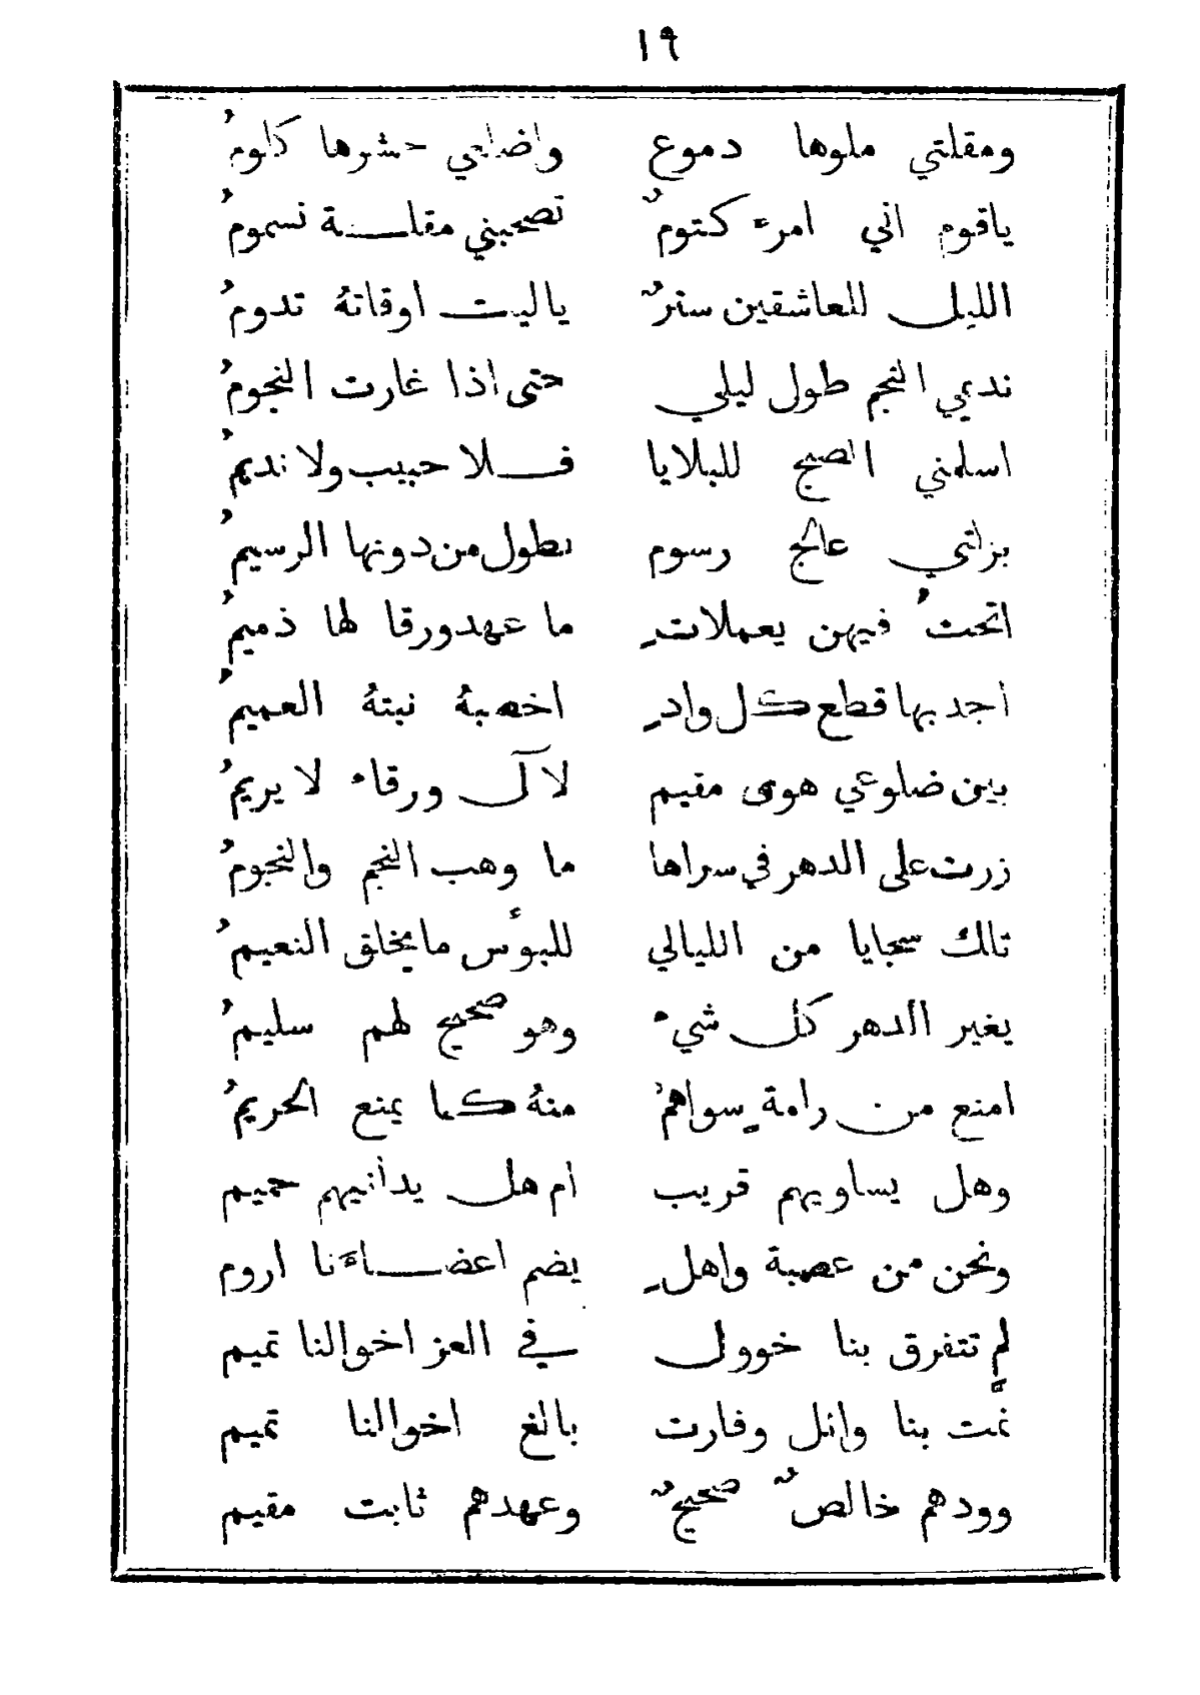 ١٩
ومقلتي ملوها دموع واضلعي حشرها كلومُ
ياقوم اني امرء كتومٌ تصحبني مقلة نسمومُ
الليل للعاشقين سترٌ ياليت اوقاتهُ تدومُ
نديمي النجم طول ليلي حتى اذا غارت النجومُ
اسلمني الصبح للبلايا فلا حبيب ولا نديمُ
برملتي عالج رسوم يطول من دونها الرسيمُ
انحتُ فيهن يعملاتِ ما عهدورقا لها ذميمُ
اجد بها قطع كل وادِ اخصبهُ نبتهُ العميمُ
بين ضلوعي هوى مقيم لآل ورقاء لا يريمُ
زرت على الدهر في سراها ما وهب النجم والنجومُ
تلك سجايا من الليالي للبؤس ما يخلق النعيمُ
يغير الدهر كل شيء وهو صحيح لهم سليمُ
امنع من رامةٍ سواهمُ منهُ كما يمنع الحريمُ
وهل يساويهم قريب ام هل يدانيهم حميم
ونحن من عصبة واهلِ يضم اعضاءَنا اروم
لم تتفرق بنا خوول في العز اخوالنا تميم
نمّت بنا وائل وفارت بالغ اخوالنا تميم
وودهم خالصٌ صحيحٌ وعهدهم ثابت مقيم